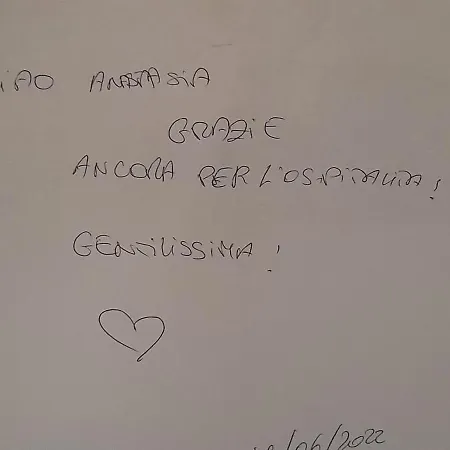 CIAO ANASTASIA
GRAZIE
ANCORA PER L'OSPITALITA!
GENTILISSIMA!
/06/2022